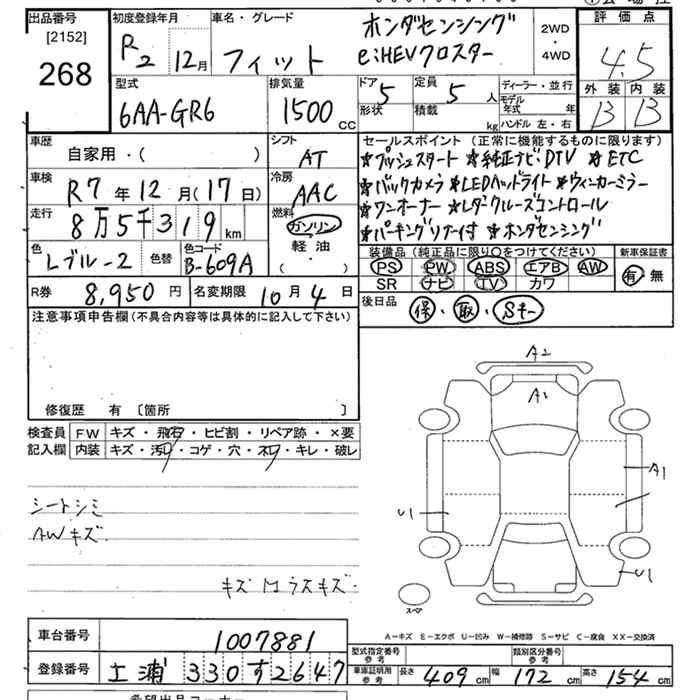 出品番号
[2152]
268
初度登録年月
R2 12月
車名・グレード
フィット
ホンダセンシング
e:HEVクロスター
2WD
・
4WD
評価点
4.5
外装 内装
B B
型式
6AA-GR6
排気量
1500 CC
ドア 5
形状
定員 5 人
積載 kg
ディーラー・並行
モデル年式 年
ハンドル 左・右
車歴
自家用・( )
シフト
AT
車検
R7年12月(17日)
冷房
AAC
走行
8万5千319km
燃料
ガソリン
軽油
・
( )
色
Lブルー2
色替
色コード
B-609A
R券 8,950円
名変期限 10月4日
セールスポイント(正常に機能するものに限ります)
★プッシュスタート ★純正ナビ・DTV ★ETC
★バックカメラ ★LEDヘッドライト ★ウィンカーミラー
★ワンオーナー ★レダークルーズコントロール
★パーキングソナー付 ★ホンダセンシング
装備品(純正品に限り○をつけてください)
PS PW ABS エアB AW
SR ナビ TV カワ
新車保証書
有 無
後日品
保・取・Sキー
注意事項申告欄(不具合内容等は具体的に記入して下さい)
修復歴 有 〔箇所 〕
検査員記入欄
FW キズ・飛石・ヒビ割・リペア跡・×要
内装 キズ・汚れ・コゲ・穴・ネジ・キレ・破レ
シートシミ
AWキズ
キズ
A2
A1
A1
U1
U1
スペア
A-キズ E-エクボ U-凹み W-補修跡 S-サビ C-腐食 XX-交換済
車台番号 1007881
登録番号 土浦 330す2647
型式指定番号 参考
類別区分番号 参考
車庫証明用 参考
長さ 409cm 幅 172cm 高さ 154cm
希望出品コーナー